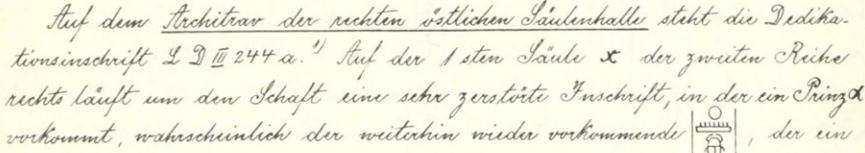 Auf dem Architrav der rechten östlichen Säulenhalle steht die Dedika-
tionsinschrift L D III 244 a. 1) Auf der 1 sten Säule x der zweiten Reihe
rechts läuft um den Schaft eine sehr zerstörte Inschrift, in der ein Prinz α
vorkommt, wahrscheinlich der weiterhin wieder vorkommende , der ein